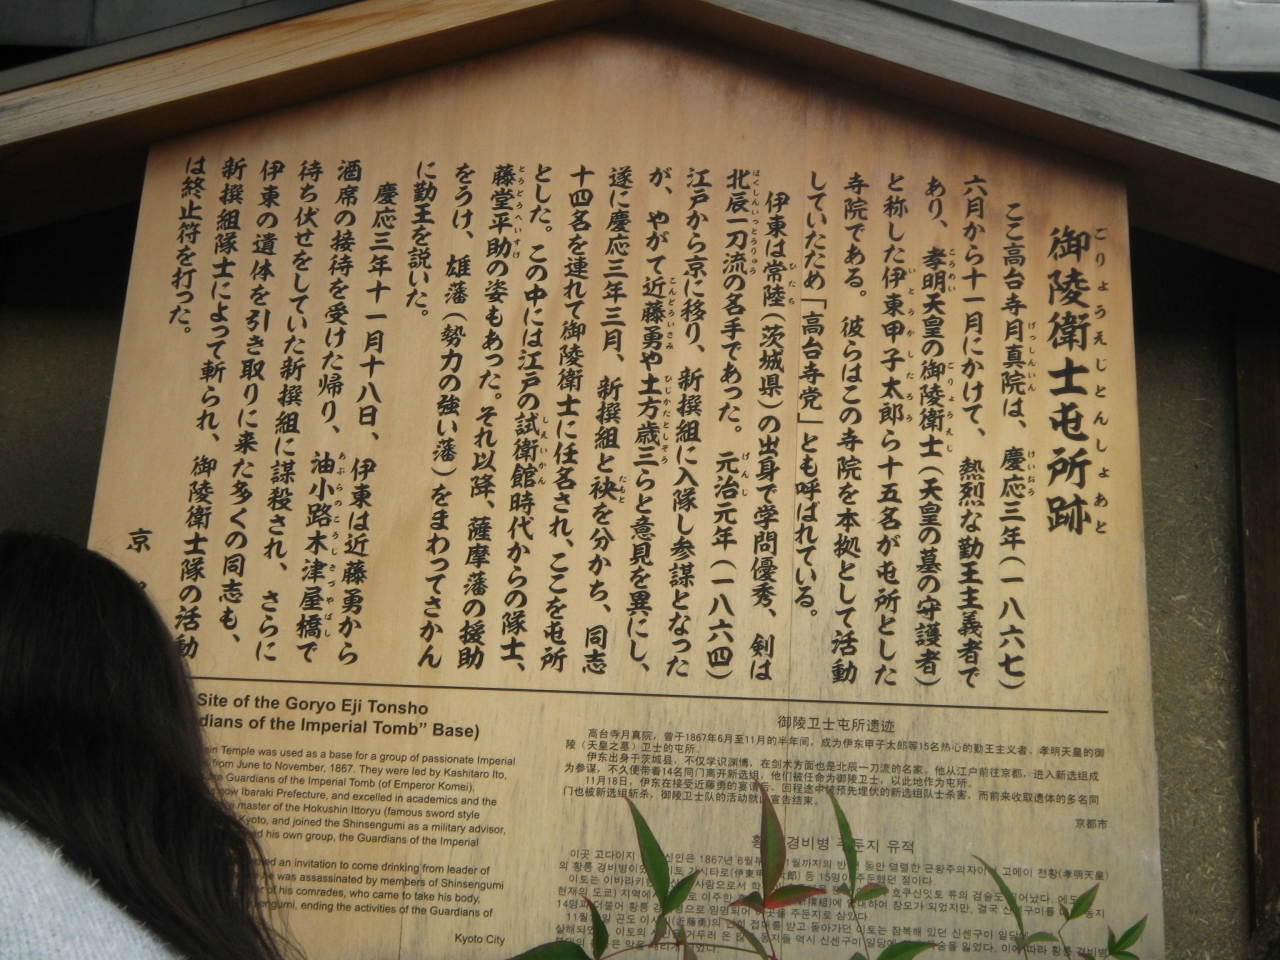 御陵衛士屯所跡
ごりょうえじとんしょあと
ここ高台寺月真院は、慶応三年（一八六七）
六月から十一月にかけて、熱烈な勤王主義者で
あり、孝明天皇の御陵衛士（天皇の墓の守護者）
と称した伊東甲子太郎ら十五名が屯所とした
寺院である。彼らはこの寺院を本拠として活動
していたため「高台寺党」とも呼ばれている。
伊東は常陸（茨城県）の出身で学問優秀、剣は
北辰一刀流の名手であった。元治元年（一八六四）
江戸から京に移り、新撰組に入隊し参謀となった
が、やがて近藤勇や土方歳三らと意見を異にし、
遂に慶応三年三月、新撰組と袂を分かち、同志
十四名を連れて御陵衛士に任名され、ここを屯所
とした。この中には江戸の試衛館時代からの隊士、
藤堂平助の姿もあった。それ以降、薩摩藩の援助
をうけ、雄藩（勢力の強い藩）をまわってさかん
に勤王を説いた。
慶応三年十一月十八日、伊東は近藤勇から
酒席の接待を受けた帰り、油小路木津屋橋で
待ち伏せをしていた新撰組に謀殺され、さらに
伊東の遺体を引き取りに来た多くの同志も、
新撰組隊士によって斬られ、御陵衛士隊の活動
は終止符を打った。
京
Site of the Goryo Eji Tonsho
dians of the Imperial Tomb” Base)
in Temple was used as a base for a group of passionate Imperial
from June to November, 1867. They were led by Kashitaro Ito,
Guardians of the Imperial Tomb (of Emperor Komei).
now Ibaraki Prefecture, and excelled in academics and the
master of the Hokushin Ittoryu (famous sword style
Kyoto, and joined the Shinsengumi as a military advisor,
his own group, the Guardians of the Imperial
an invitation to come drinking from leader of
he was assassinated by members of Shinsengumi
of his comrades, who came to take his body,
ending the activities of the Guardians of
Kyoto City
御陵卫士屯所遗迹
高台寺月真院，曾于1867年6月至11月的半年间，成为伊东甲子太郎等15名热心的勤王主义者、孝明天皇的御
陵（天皇之墓）卫士的屯所。
伊东出身于茨城县，不仅学识渊博，在剑术方面也是北辰一刀流的名家。他从江户前往京都，进入新选组成
为参谋，不久便带着14名同门离开新选组，他们被任命为御陵卫士，以此地作为屯所。
11月18日，伊东在接受近藤勇的宴请后，回程途中被预先埋伏的新选组队士杀害，而前来收取遗体的多名同
门也被新选组斩杀，御陵卫士队的活动就 宣告结束。
京都市
경비병 주둔지 유적
이곳 고다이지 신인은 1867년 6월부 1월까지의 반 동안 열렬한 근왕주의자 고메이 천황(孝明天皇)
의 황릉 경비병이 시타로(伊東甲 郎) 등 15명이 주둔했던 절이다.